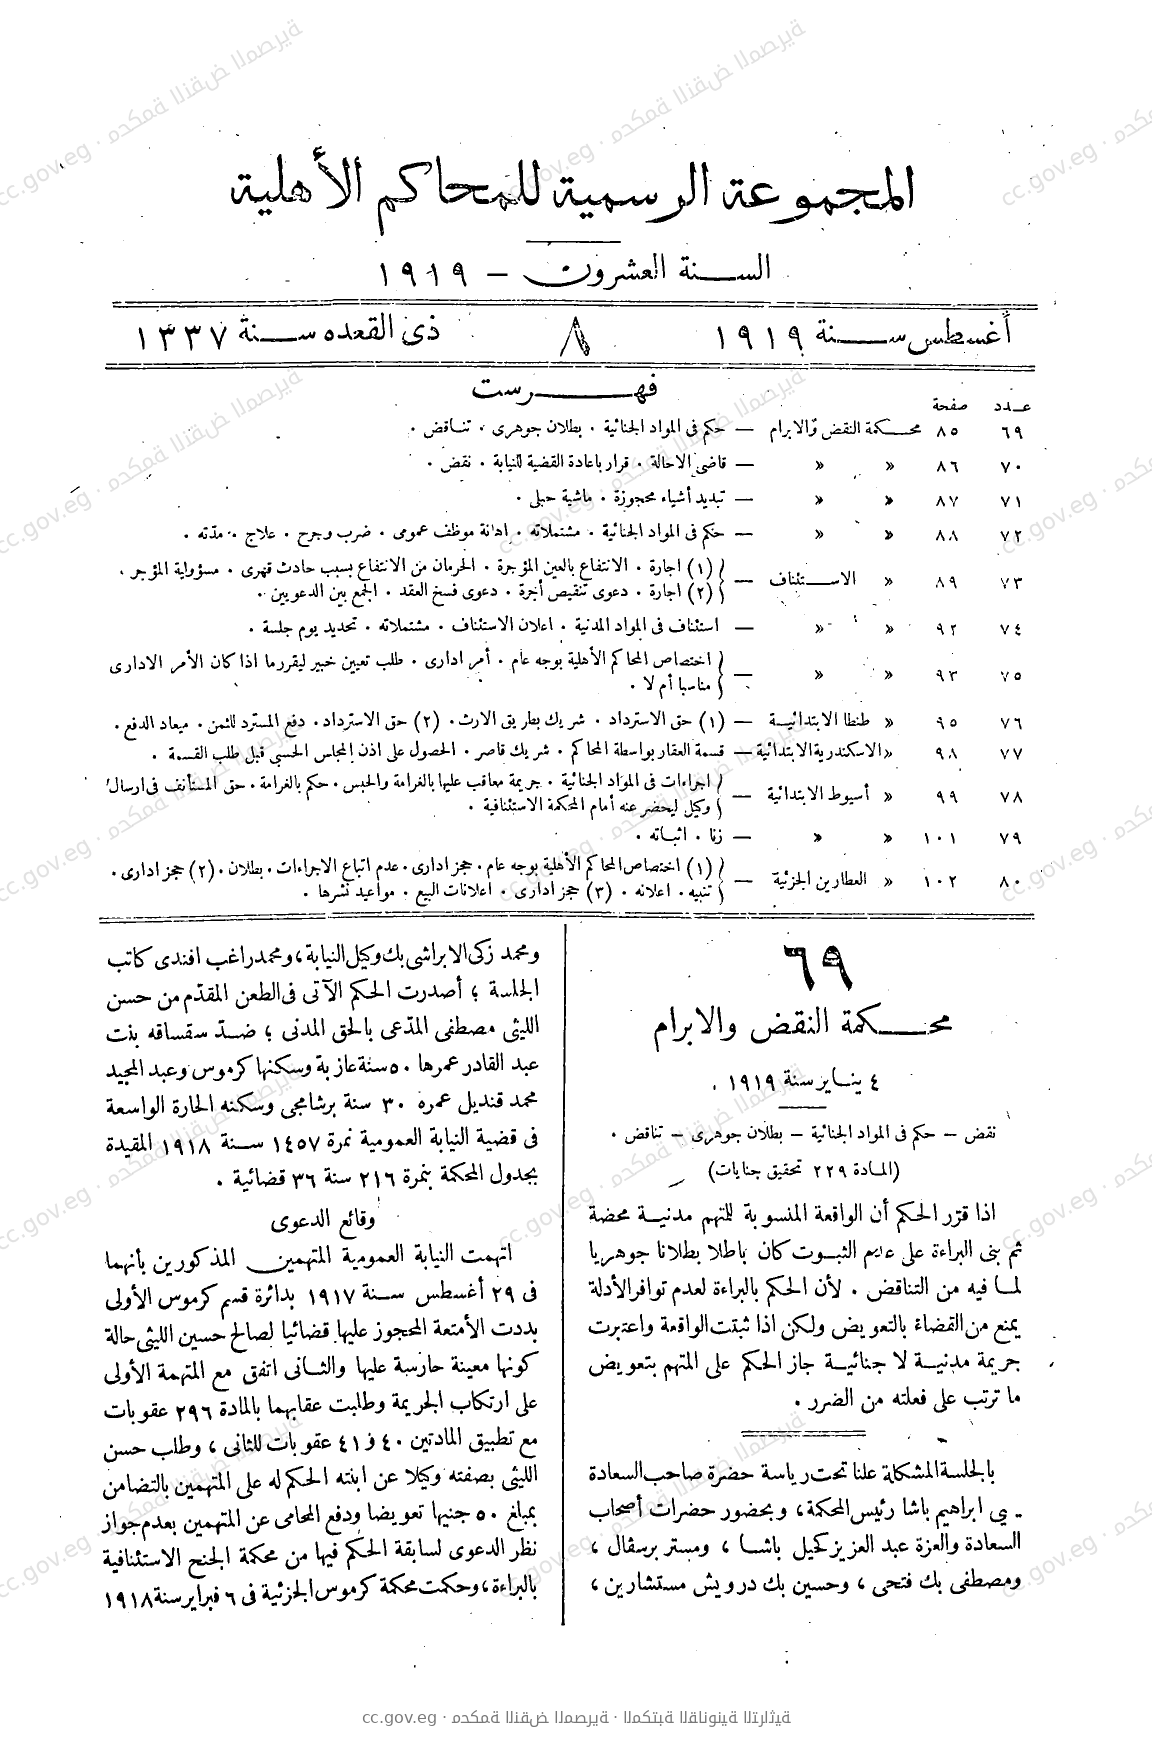 المجموعة الرسمية للمحاكم الأهلية
السنة العشرون – ١٩١٩
أغسطس سنة ١٩١٩
٨
ذى القعده سنة ١٣٣٧
فهرست
عدد صفحة
٦٩ ٨٥ محكمة النقض والابرام — حكم فى المواد الجنائية . بطلان جوهرى . تناقض .
٧٠ ٨٦ « « — قاضى الاحالة . قرار باعادة القضية للنيابة . نقض .
٧١ ٨٧ « « — تبديد أشياء محجوزة . ماشية حبلى .
٧٢ ٨٨ « « — حكم فى المواد الجنائية . مشتملاته . اهانة موظف عمومى . ضرب وجرح . علاج . مدّته .
٧٣ ٨٩ « الاستئناف — (١) اجارة . الانتفاع بالعين المؤجرة . الحرمان من الانتفاع بسبب حادث قهرى . مسؤولية المؤجر .
(٢) اجارة . دعوى تنقيص أجرة . دعوى فسخ العقد . الجمع بين الدعويين .
٧٤ ٩٢ « « — استئناف فى المواد المدنية . اعلان الاستئناف . مشتملاته . تحديد يوم جلسة .
٧٥ ٩٣ « « — اختصاص المحاكم الأهلية بوجه عام . أمر ادارى . طلب تعيين خبير ليقرر ما اذا كان الأمر الادارى
مناسبا أم لا .
٧٦ ٩٥ « طنطا الابتدائية — (١) حق الاسترداد . شريك بطريق الارث . (٢) حق الاسترداد . دفع المسترد للثمن . ميعاد الدفع .
٧٧ ٩٨ « الاسكندرية الابتدائية — قسمة العقار بواسطة المحاكم . شريك قاصر . الحصول على اذن المجلس الحسبى قبل طلب القسمة .
٧٨ ٩٩ « أسيوط الابتدائية — اجراءات فى المواد الجنائية . جريمة معاقب عليها بالغرامة والحبس . حكم بالغرامة . حق المستأنف فى ارسال
وكيل ليحضر عنه أمام المحكمة الاستئنافية .
٧٩ ١٠١ « « — زنا . اثباته .
٨٠ ١٠٢ « العطارين الجزئية — (١) اختصاص المحاكم الأهلية بوجه عام . حجز ادارى . عدم اتباع الاجراءات . بطلان . (٢) حجز ادارى .
تنبيه . اعلانه . (٣) حجز ادارى . اعلانات البيع . مواعيد نشرها .
٦٩
محكمة النقض والابرام
٤ يناير سنة ١٩١٩ .
نقض – حكم فى المواد الجنائية – بطلان جوهرى – تناقض .
(المادة ٢٢٩ تحقيق جنايات)
اذا قرّر الحكم أن الواقعة المنسوبة للمتهم مدنية محضة
ثم بنى البراءة على عدم الثبوت كان باطلا بطلانا جوهريا
لما فيه من التناقض . لأن الحكم بالبراءة لعدم توافر الأدلة
يمنع من القضاء بالتعويض ولكن اذا ثبتت الواقعة واعتبرت
جريمة مدنية لا جنائية جاز الحكم على المتهم بتعويض
ما ترتب على فعلته من الضرر .
بالجلسة المشكلة علنا تحت رياسة حضرة صاحب السعادة
ابراهيم باشا رئيس المحكمة، وبحضور حضرات أصحاب
السعادة والعزة عبد العزيز كحيل باشا ، ومستر برسڤال ،
ومصطفى بك فتحى ، وحسين بك درويش مستشارين ،
ومحمد زكى الابراشى بك وكيل النيابة، ومحمد راغب افندى كاتب
الجلسة ؛ أصدرت الحكم الآتى فى الطعن المقدّم من حسن
الليثى مصطفى المدّعى بالحق المدنى ؛ ضدّ سقساقه بنت
عبد القادر عمرها ٥٠ سنة عازبة وسكنها كرموس وعبد المجيد
محمد قنديل عمره ٣٠ سنة برشامجى وسكنه الحارة الواسعة
فى قضية النيابة العمومية نمرة ١٤٥٧ سنة ١٩١٨ المقيدة
بجدول المحكمة بنمرة ٢١٦ سنة ٣٦ قضائية .
وقائع الدعوى
اتهمت النيابة العمومية المتهمين المذكورين بأنهما
فى ٢٩ أغسطس سنة ١٩١٧ بدائرة قسم كرموس الأولى
بددت الأمتعة المحجوز عليها قضائيا لصالح حسين الليثى حالة
كونها معينة حارسة عليها والثانى اتفق مع المتهمة الأولى
على ارتكاب الجريمة وطلبت عقابهما بالمادة ٢٩٦ عقوبات
مع تطبيق المادتين ٤٠ و ٤١ عقوبات للثانى ، وطلب حسن
الليثى بصفته وكيلا عن ابنته الحكم له على المتهمين بالتضامن
بمبلغ ٥٠ جنيها تعويضا ودفع المحامى عن المتهمين بعدم جواز
نظر الدعوى لسابقة الحكم فيها من محكمة الجنح الاستئنافية
بالبراءة، وحكمت محكمة كرموس الجزئية فى ٦ فبراير سنة ١٩١٨
cc.gov.eg · محكمة النقض المصرية · المكتبة القانونية التراثية